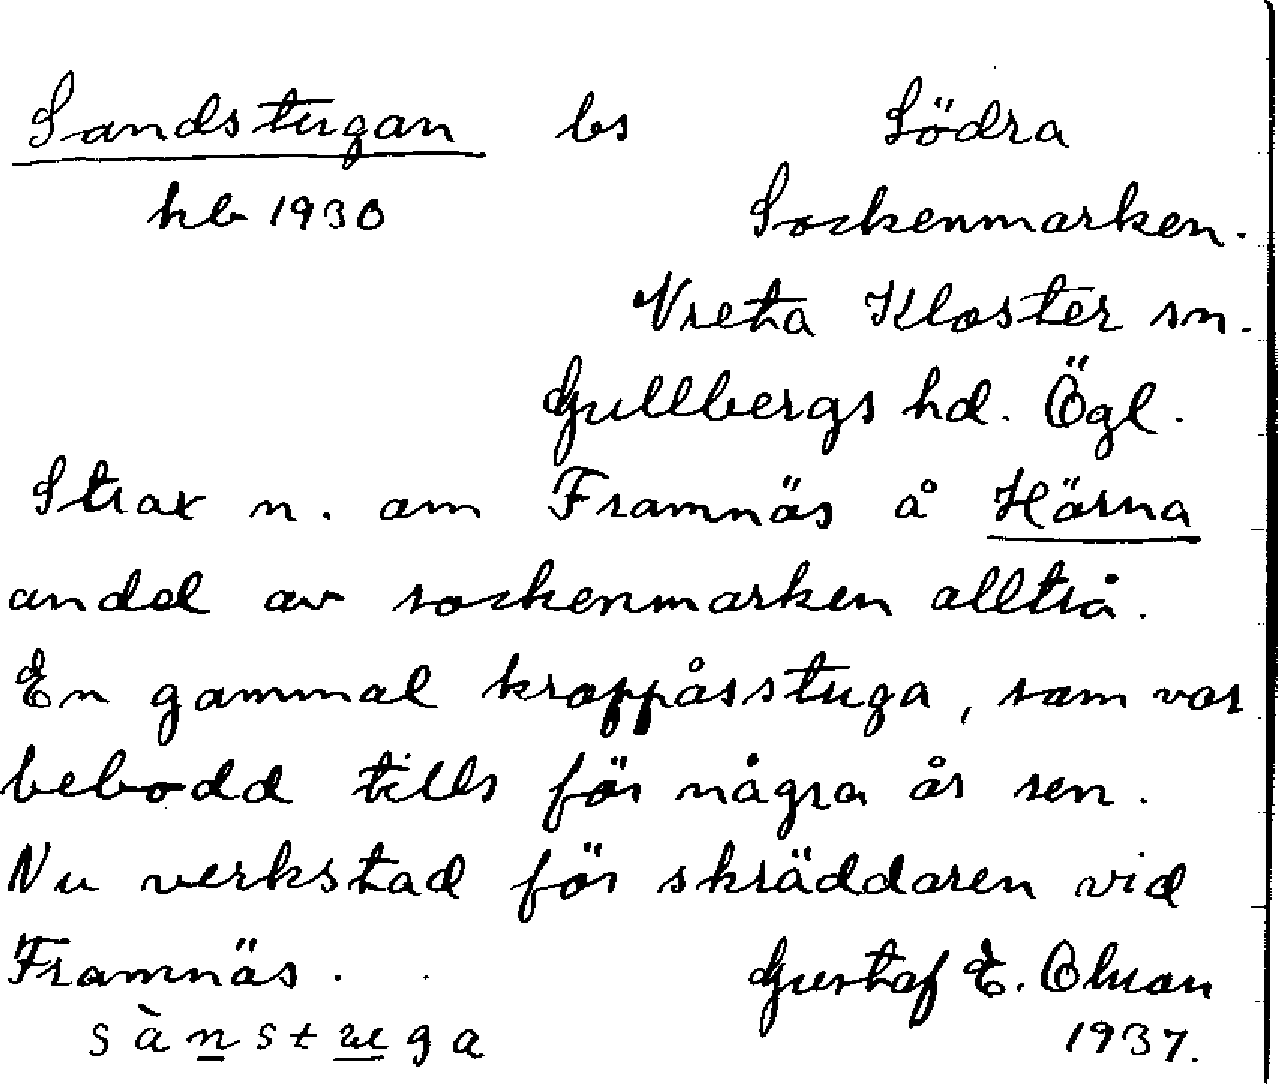 Sandstugan bs Södra
hb 1930 Sockenmarken.
Vreta Kloster sn.
Gullbergs hd. Ögl.
Strax n. om Framnäs å Härna
andel av sockenmarken alltså.
En gammal kroppåsstuga, som var
bebodd tills för några år sen.
Nu verkstad för skräddaren vid
Framnäs. Gustaf E. Olson
sànstuga 1937.